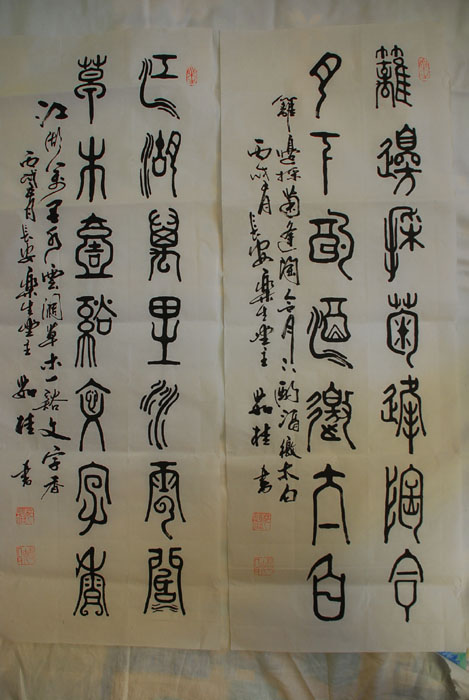 籬邊採菊逢陶令
月下酌酒邀太白
籬邊採菊逢陶令月下酌酒邀太白
丙戌 月長安樂生堂主 茹桂 書
江湖萬里水雲闊
草木壹谿文字香
江湖萬里水雲闊草木一谿文字香
丙戌 月長安樂生堂主 茹桂 書